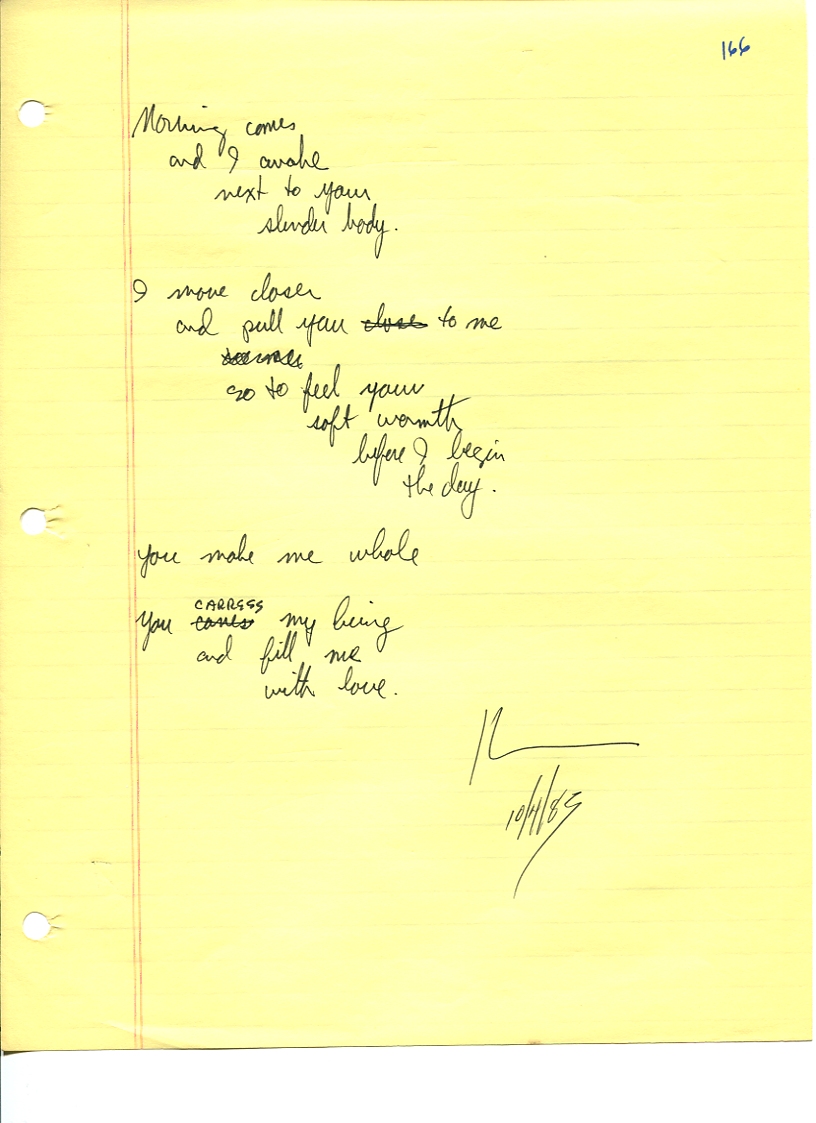 166
Morning comes
and I awake
next to your
slender body.
I move closer
and pull you close to me
so to feel your
soft warmth
before I begin
the day.
you make me whole
CARRESS
You my being
and fill me
with love.